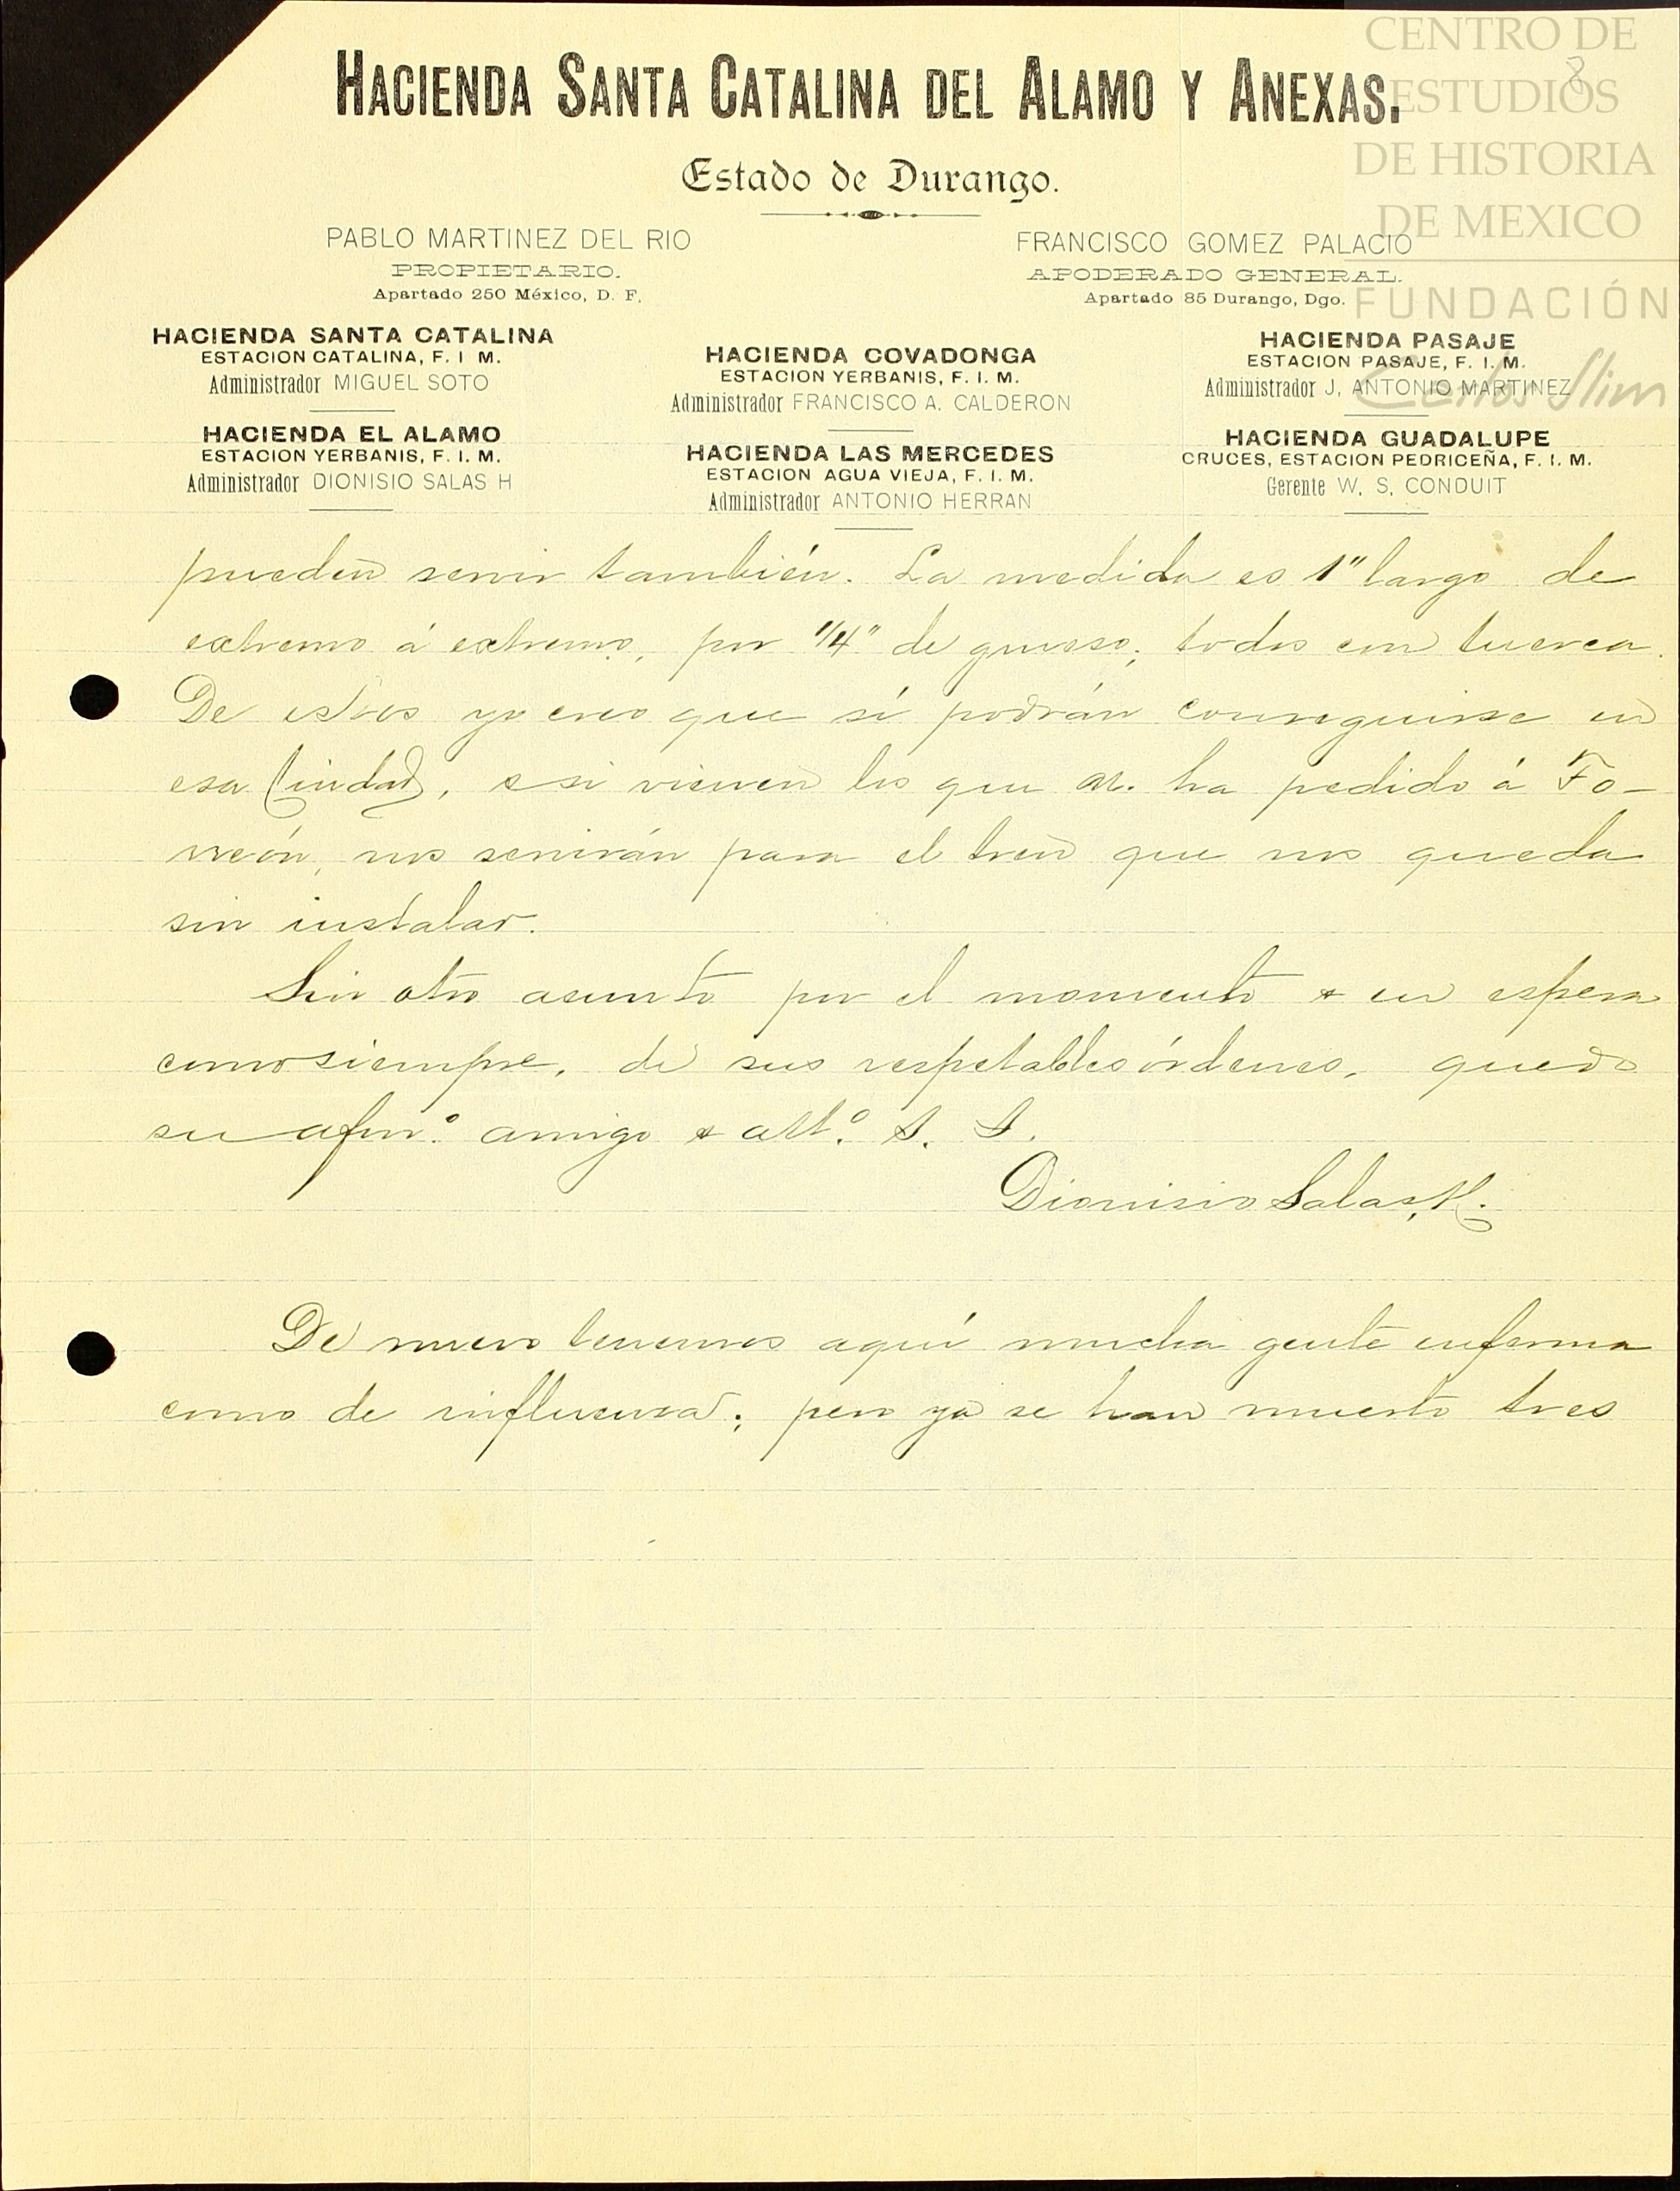 CENTRO DE
ESTUDIOS
DE HISTORIA
DE MEXICO
FUNDACIÓN
Carlos Slim
HACIENDA SANTA CATALINA DEL ALAMO Y ANEXAS.
Estado de Durango.
PABLO MARTINEZ DEL RIO
PROPIETARIO.
Apartado 250 México, D. F.
FRANCISCO GOMEZ PALACIO
APODERADO GENERAL.
Apartado 85 Durango, Dgo.
HACIENDA SANTA CATALINA
ESTACION CATALINA, F. I M.
Administrador MIGUEL SOTO
HACIENDA EL ALAMO
ESTACION YERBANIS, F. I. M.
Administrador DIONISIO SALAS H
HACIENDA COVADONGA
ESTACION YERBANIS, F. I. M.
Administrador FRANCISCO A. CALDERON
HACIENDA LAS MERCEDES
ESTACION AGUA VIEJA, F. I. M.
Administrador ANTONIO HERRAN
HACIENDA PASAJE
ESTACION PASAJE, F. I. M.
Administrador J. ANTONIO MARTINEZ
HACIENDA GUADALUPE
CRUCES, ESTACION PEDRICEÑA, F. I. M.
Gerente W. S. CONDUIT
pueden servir también. La medida es 1" largo de
extremo á extremo, por 1/4" de grueso; todos con tuerca.
De estos yo creo que sí podrán conseguirse en
esa Ciudad, e si vienen los que ha pedido á To-
rreón, nos servirán para el tren que nos queda
sin instalar.
Sin otro asunto por el momento & en espera
como siempre, de sus respetables órdenes, quedo
su afmo. amigo & atto. S. S.
Dionisio Salas H.
De nuevo tenemos aquí mucha gente enferma
como de influenza; pero ya se han muerto tres